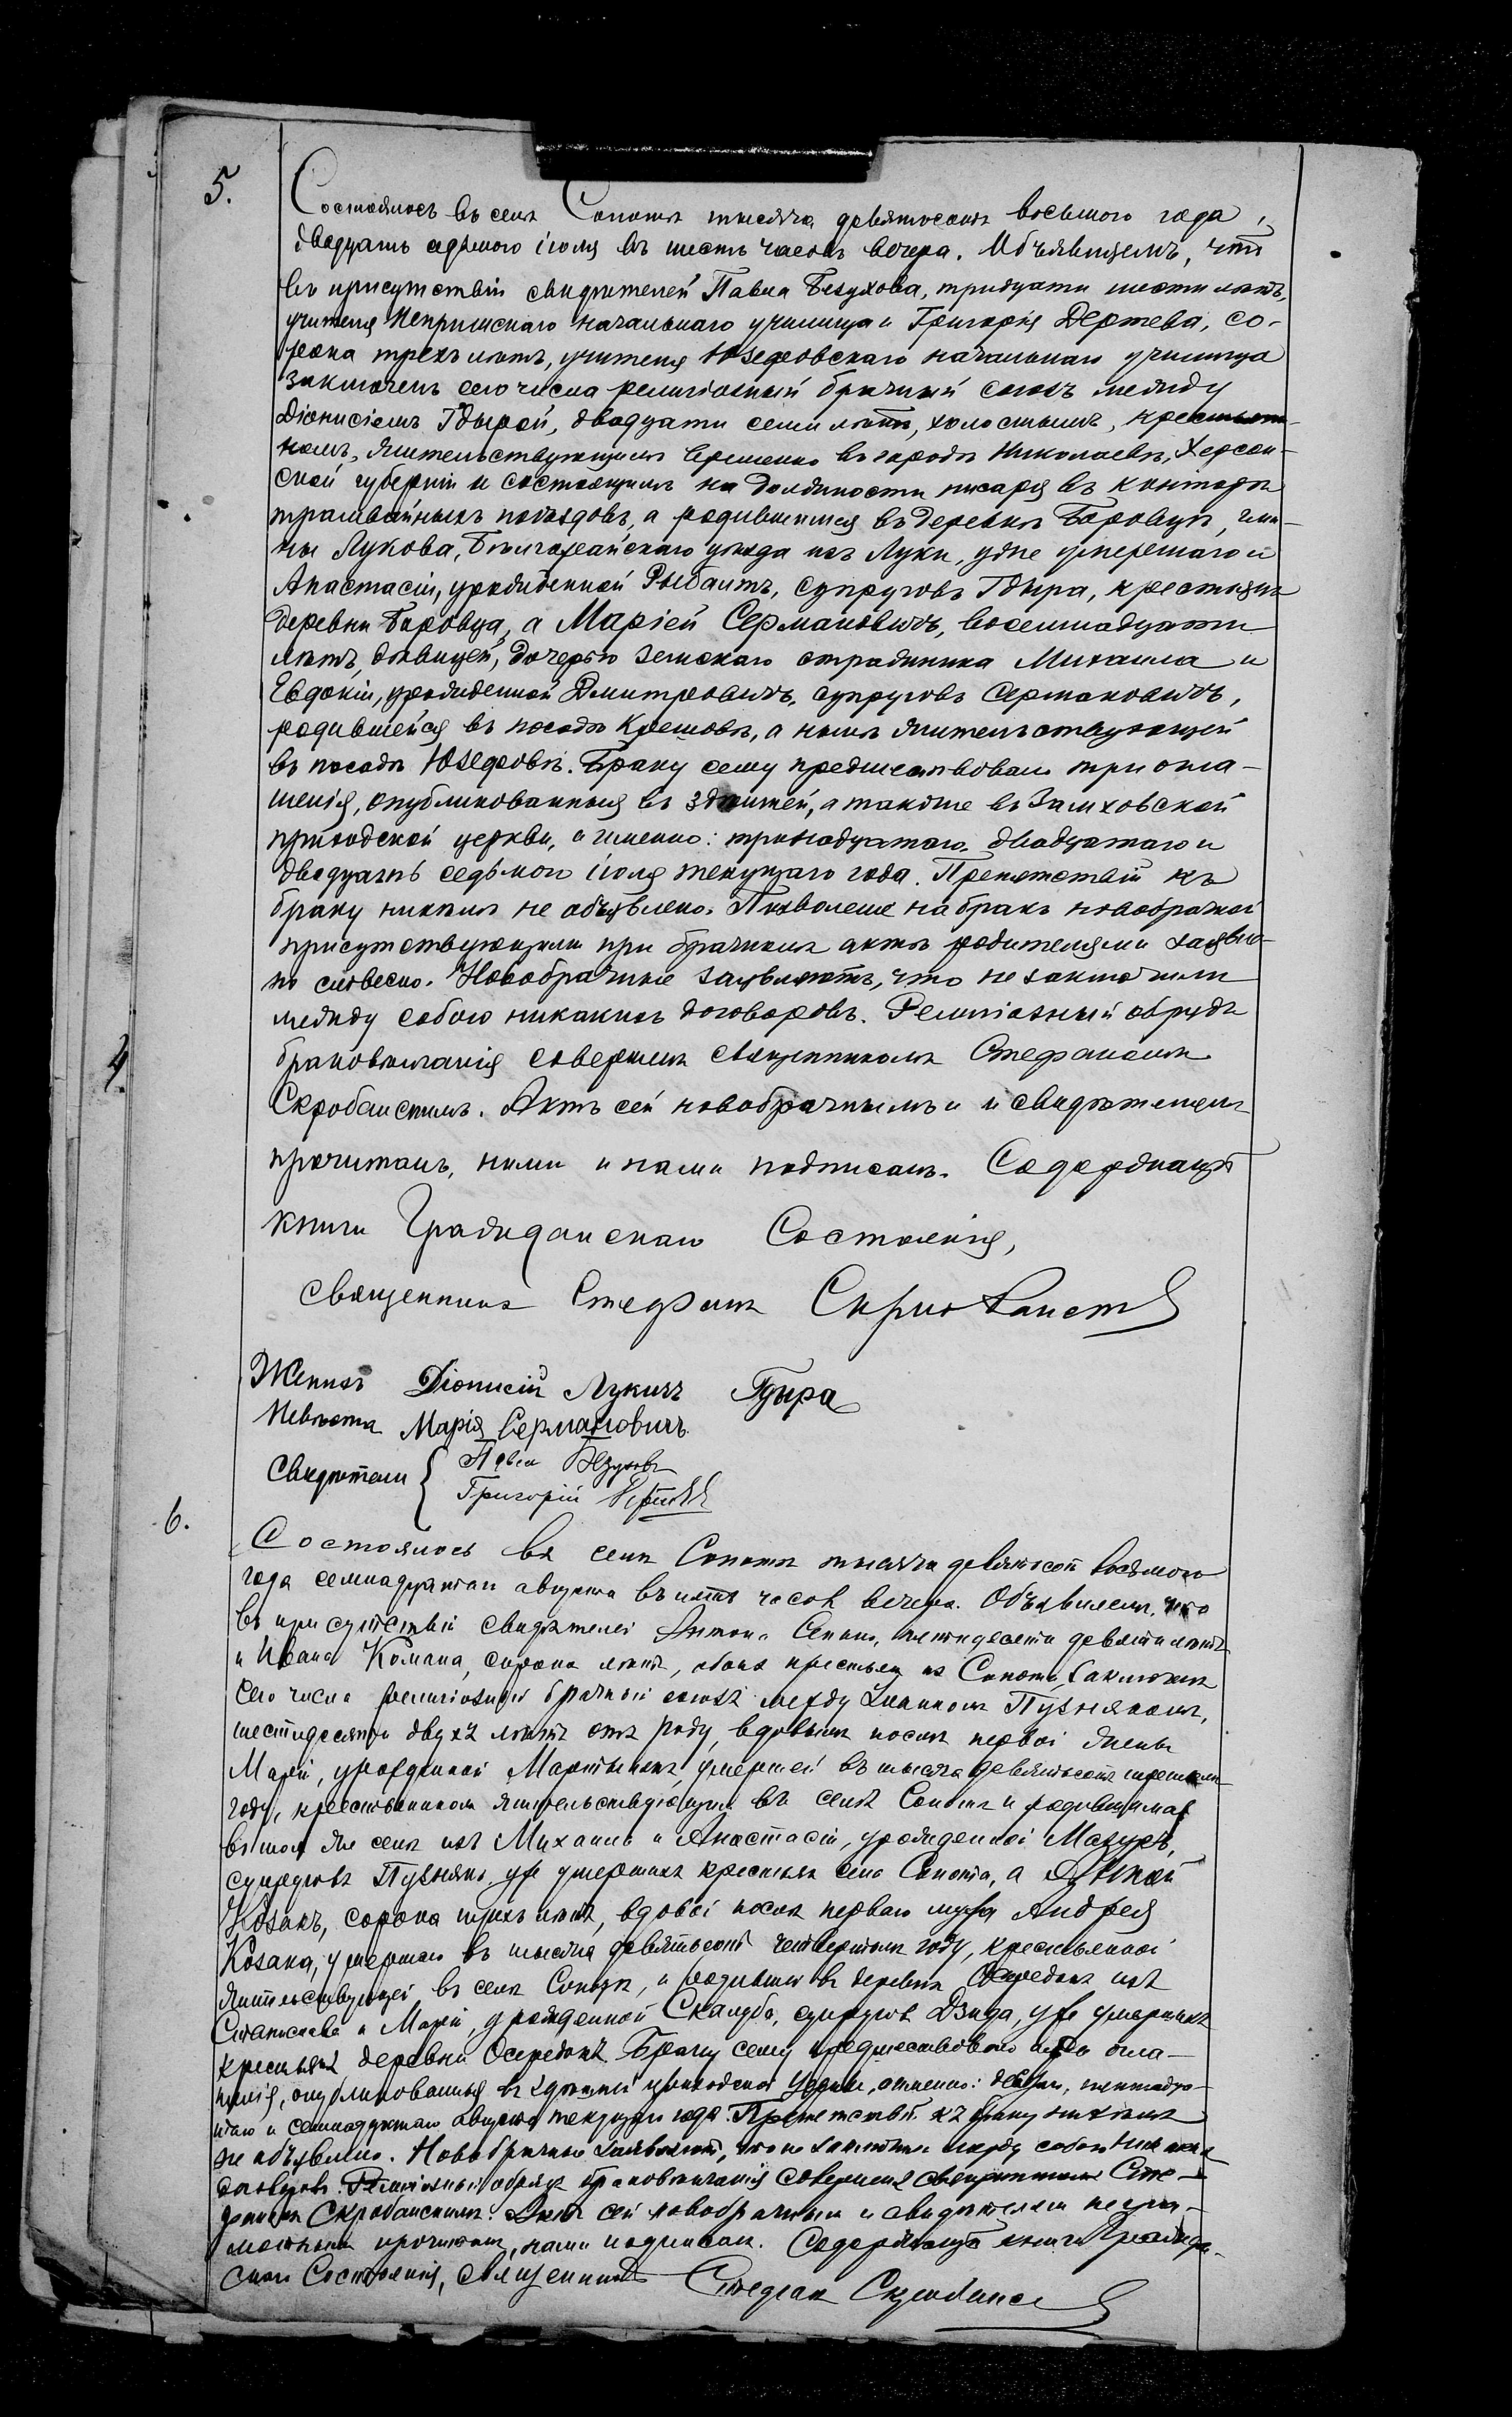 5.
Состоялось въ селѣ Сопотѣ тысяча девятьсотъ восьмого года,
двадцать седьмого іюля въ шесть часовъ вечера. Объявляемъ, что
въ присутствіи свидѣтелей Павла Безухова, тридцати шести лѣтъ,
учителя начальнаго училища и Григорія Дертева, со-
рока трехъ лѣтъ, учителя Юзефовскаго начальнаго училища
заключенъ сего числа религіозный брачный союзъ между
Діонисіемъ Гдырой, двадцати семи лѣтъ, холостымъ, крестьяни-
номъ, жительствующимъ временно въ городѣ Николаевѣ, Херсон-
ской губерніи и состоящимъ на должности писаря въ конторѣ
трамвайныхъ поѣздовъ, а родившимся въ деревнѣ Боровцѣ, гми-
ны Лукова, Бѣлгорайскаго уѣзда изъ Луки, уже умершаго и
Анастасіи, урожденной Рыбакъ, супруговъ Гдыра, крестьянъ
деревни Боровца, а Маріей Сермановичъ, восемнадцати
лѣтъ, дѣвицей, дочерью земскаго стражника Михаила и
Евдокіи, урожденной Дмитровичъ, супруговъ Сермановичъ,
родившейся въ посадѣ Крешовѣ, а нынѣ жительствующей
въ посадѣ Юзефовѣ. Браку сему предшествовали три огла-
шенія, опубликованныя въ здѣшней, а также въ Замховской
приходской церкви, а именно: тринадцатаго, двадцатаго и
двадцать седьмого іюля текущаго года. Препятствій къ
браку никѣмъ не объявлено. Позволеніе на бракъ новобрачной
присутствующими при брачномъ актѣ родителями заявле-
но словесно. Новобрачные заявляютъ, что не заключили
между собою никакихъ договоровъ. Религіозный обрядъ
бракосочетанія совершенъ священникомъ Стефаномъ
Скробанскимъ. Актъ сей новобрачнымъ и свидѣтелямъ
прочитанъ, ними и нами подписанъ. Содержащій
книги Гражданскаго Состоянія,
священникъ Стефанъ Скробанскій
Женихъ Діонисій Лукичъ Гдыра
Невѣста Марія Сермановичъ
Свидѣтели { Павелъ Безуховъ
Григорій
6.
Состоялось въ селѣ Сопотѣ тысяча девятьсотъ восьмого
года семнадцатаго августа въ пять часовъ вечера. Объявляемъ, что
въ присутствіи свидѣтелей Антона пятидесяти девяти лѣтъ
и Ивана Комана, сорока лѣтъ, обоихъ крестьянъ изъ Сопота, заключенъ
сего числа религіозный брачный союзъ между Пузнякомъ,
шестидесяти двухъ лѣтъ отъ роду, вдовымъ послѣ первой жены
Маріи, урожденной умершей въ тысяча девятьсотъ
году, крестьяниномъ жительствующимъ въ селѣ Сопотѣ и родившимся
въ томъ же селѣ изъ Михаила и Анастасіи, урожденной Мазуръ,
супруговъ Пузнякъ, уже умершихъ крестьянъ села Сопота, а
Козакъ, сорока трехъ лѣтъ, вдовой послѣ перваго мужа Андрея
Козака, умершаго въ тысяча девятьсотъ четвертомъ году, крестьянкой
жительствующей въ селѣ Сопотѣ, и родившейся въ деревнѣ Осередокъ изъ
Станислава и Маріи, урожденной Скалуба, супруговъ Дзида, уже умершихъ
крестьянъ деревни Осередокъ. Браку сему предшествовало три огла-
шенія, опубликованныя въ здѣшней приходской церкви, а именно:
и семнадцатаго августа текущаго года. Препятствій къ браку никѣмъ
не объявлено. Новобрачные заявляютъ, что не заключили между собою никакихъ
договоровъ. Религіозный обрядъ бракосочетанія совершенъ священникомъ Сте-
фаномъ Скробанскимъ. Актъ сей новобрачнымъ и свидѣтелямъ негра-
мотнымъ прочитанъ, нами подписанъ. Содержащій книги Граждан-
скаго Состоянія, священникъ Стефанъ Скробанскій
4.